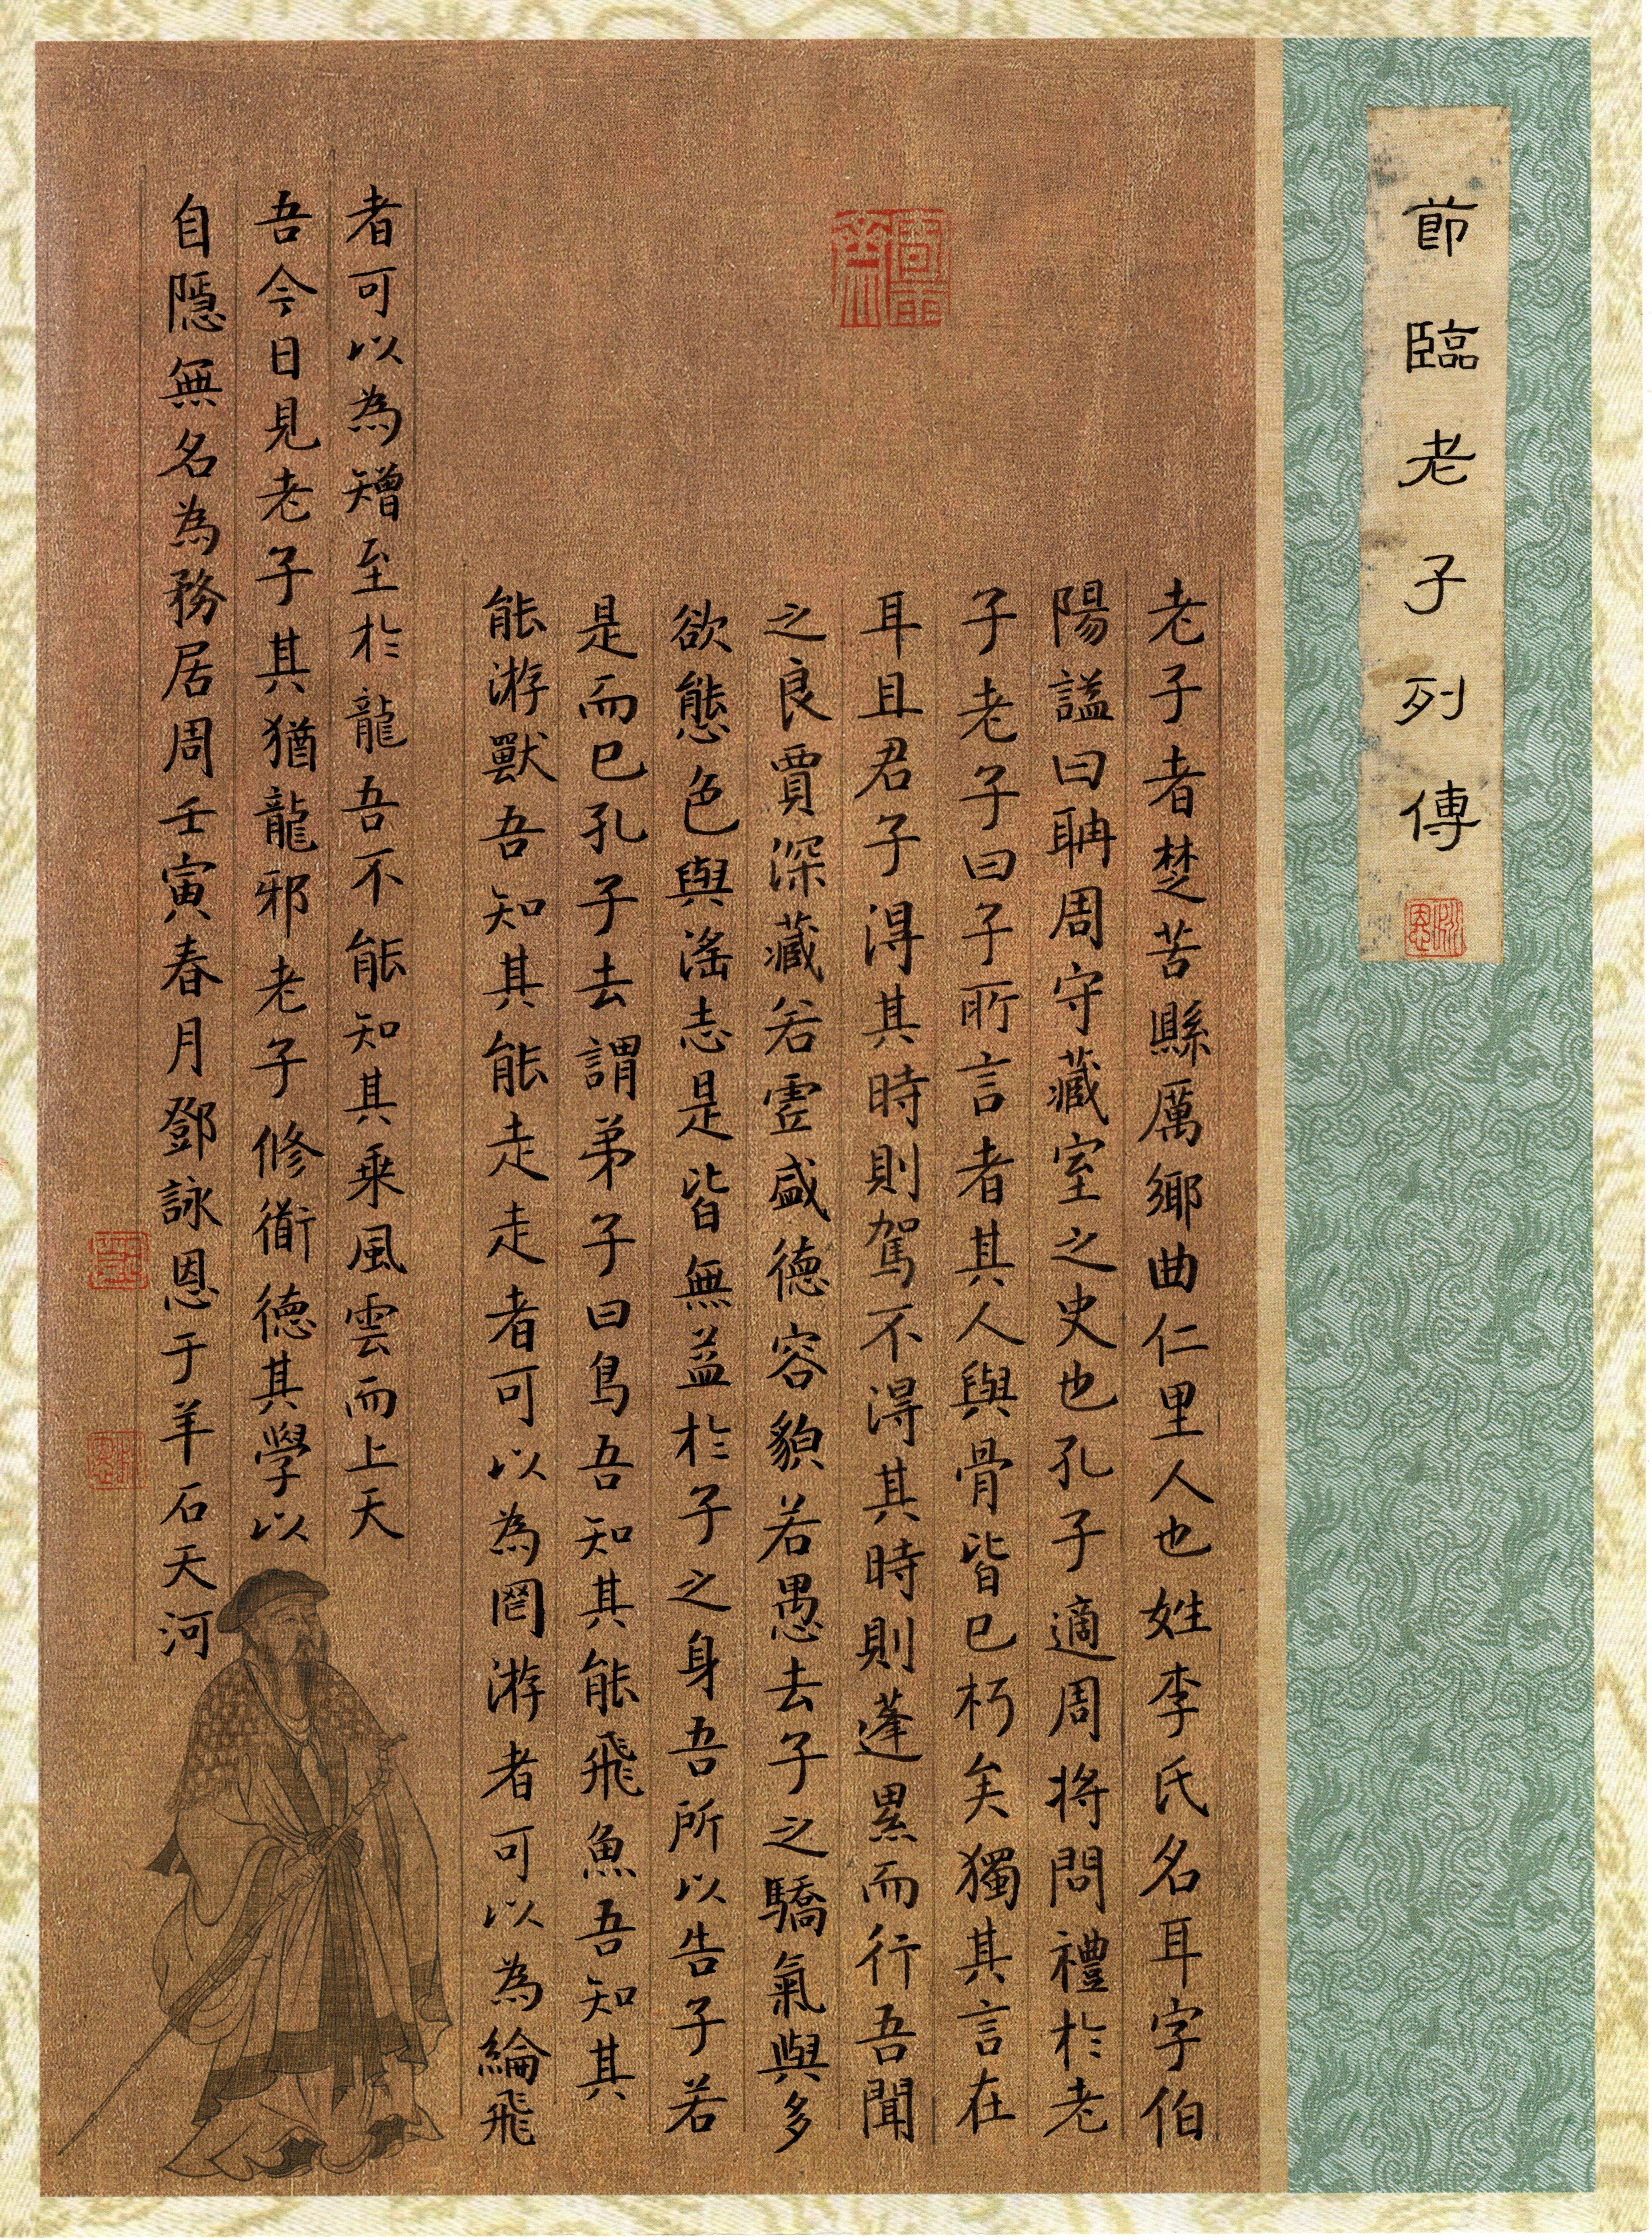 節臨老子列傳
老子者楚苦縣厲鄉曲仁里人也姓李氏名耳字伯
陽謚曰耼周守藏室之史也孔子適周將問禮於老
子老子曰子所言者其人與骨皆已朽矣獨其言在
耳且君子得其時則駕不得其時則蓬累而行吾聞
之良賈深藏若虛盛德容貌若愚去子之驕氣與多
欲態色與滛志是皆無益於子之身吾所以告子若
是而已孔子去謂弟子曰鳥吾知其能飛魚吾知其
能游獸吾知其能走走者可以為罔游者可以為綸飛
者可以為矰至於龍吾不能知其乘風雲而上天
吾今日見老子其猶龍邪老子修衜德其學以
自隱無名為務居周壬寅春月鄧詠恩于羊石天河